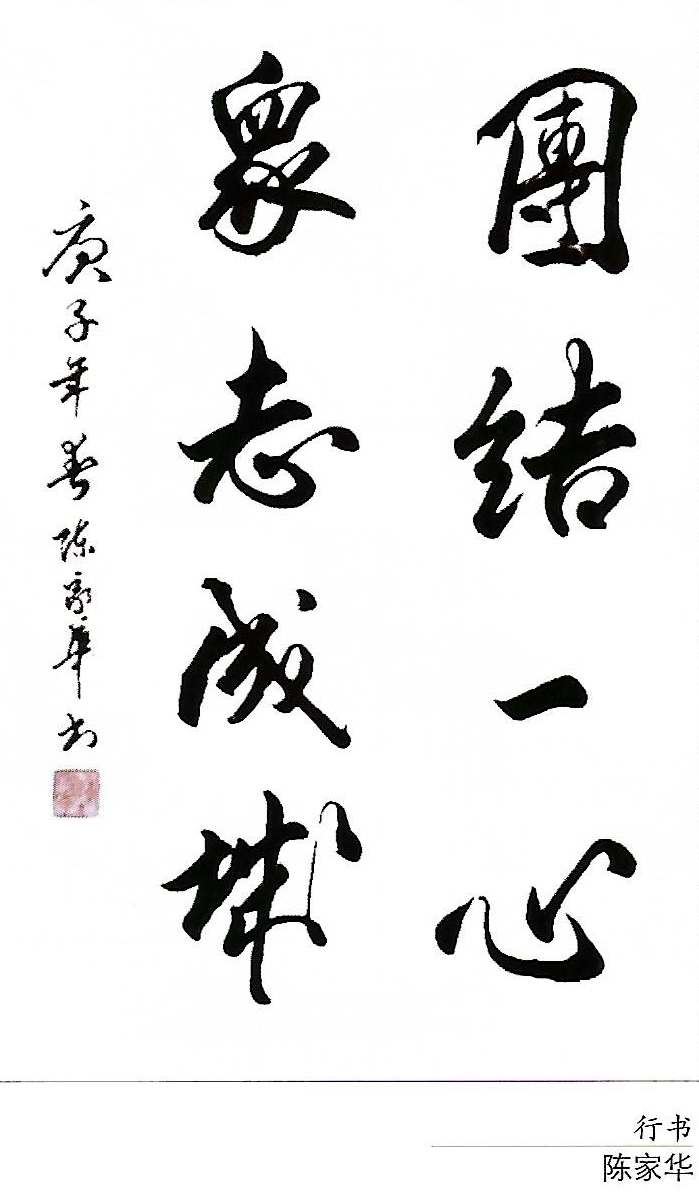 團結一心
眾志成城
庚子年春陈家华书
行书
陈家华